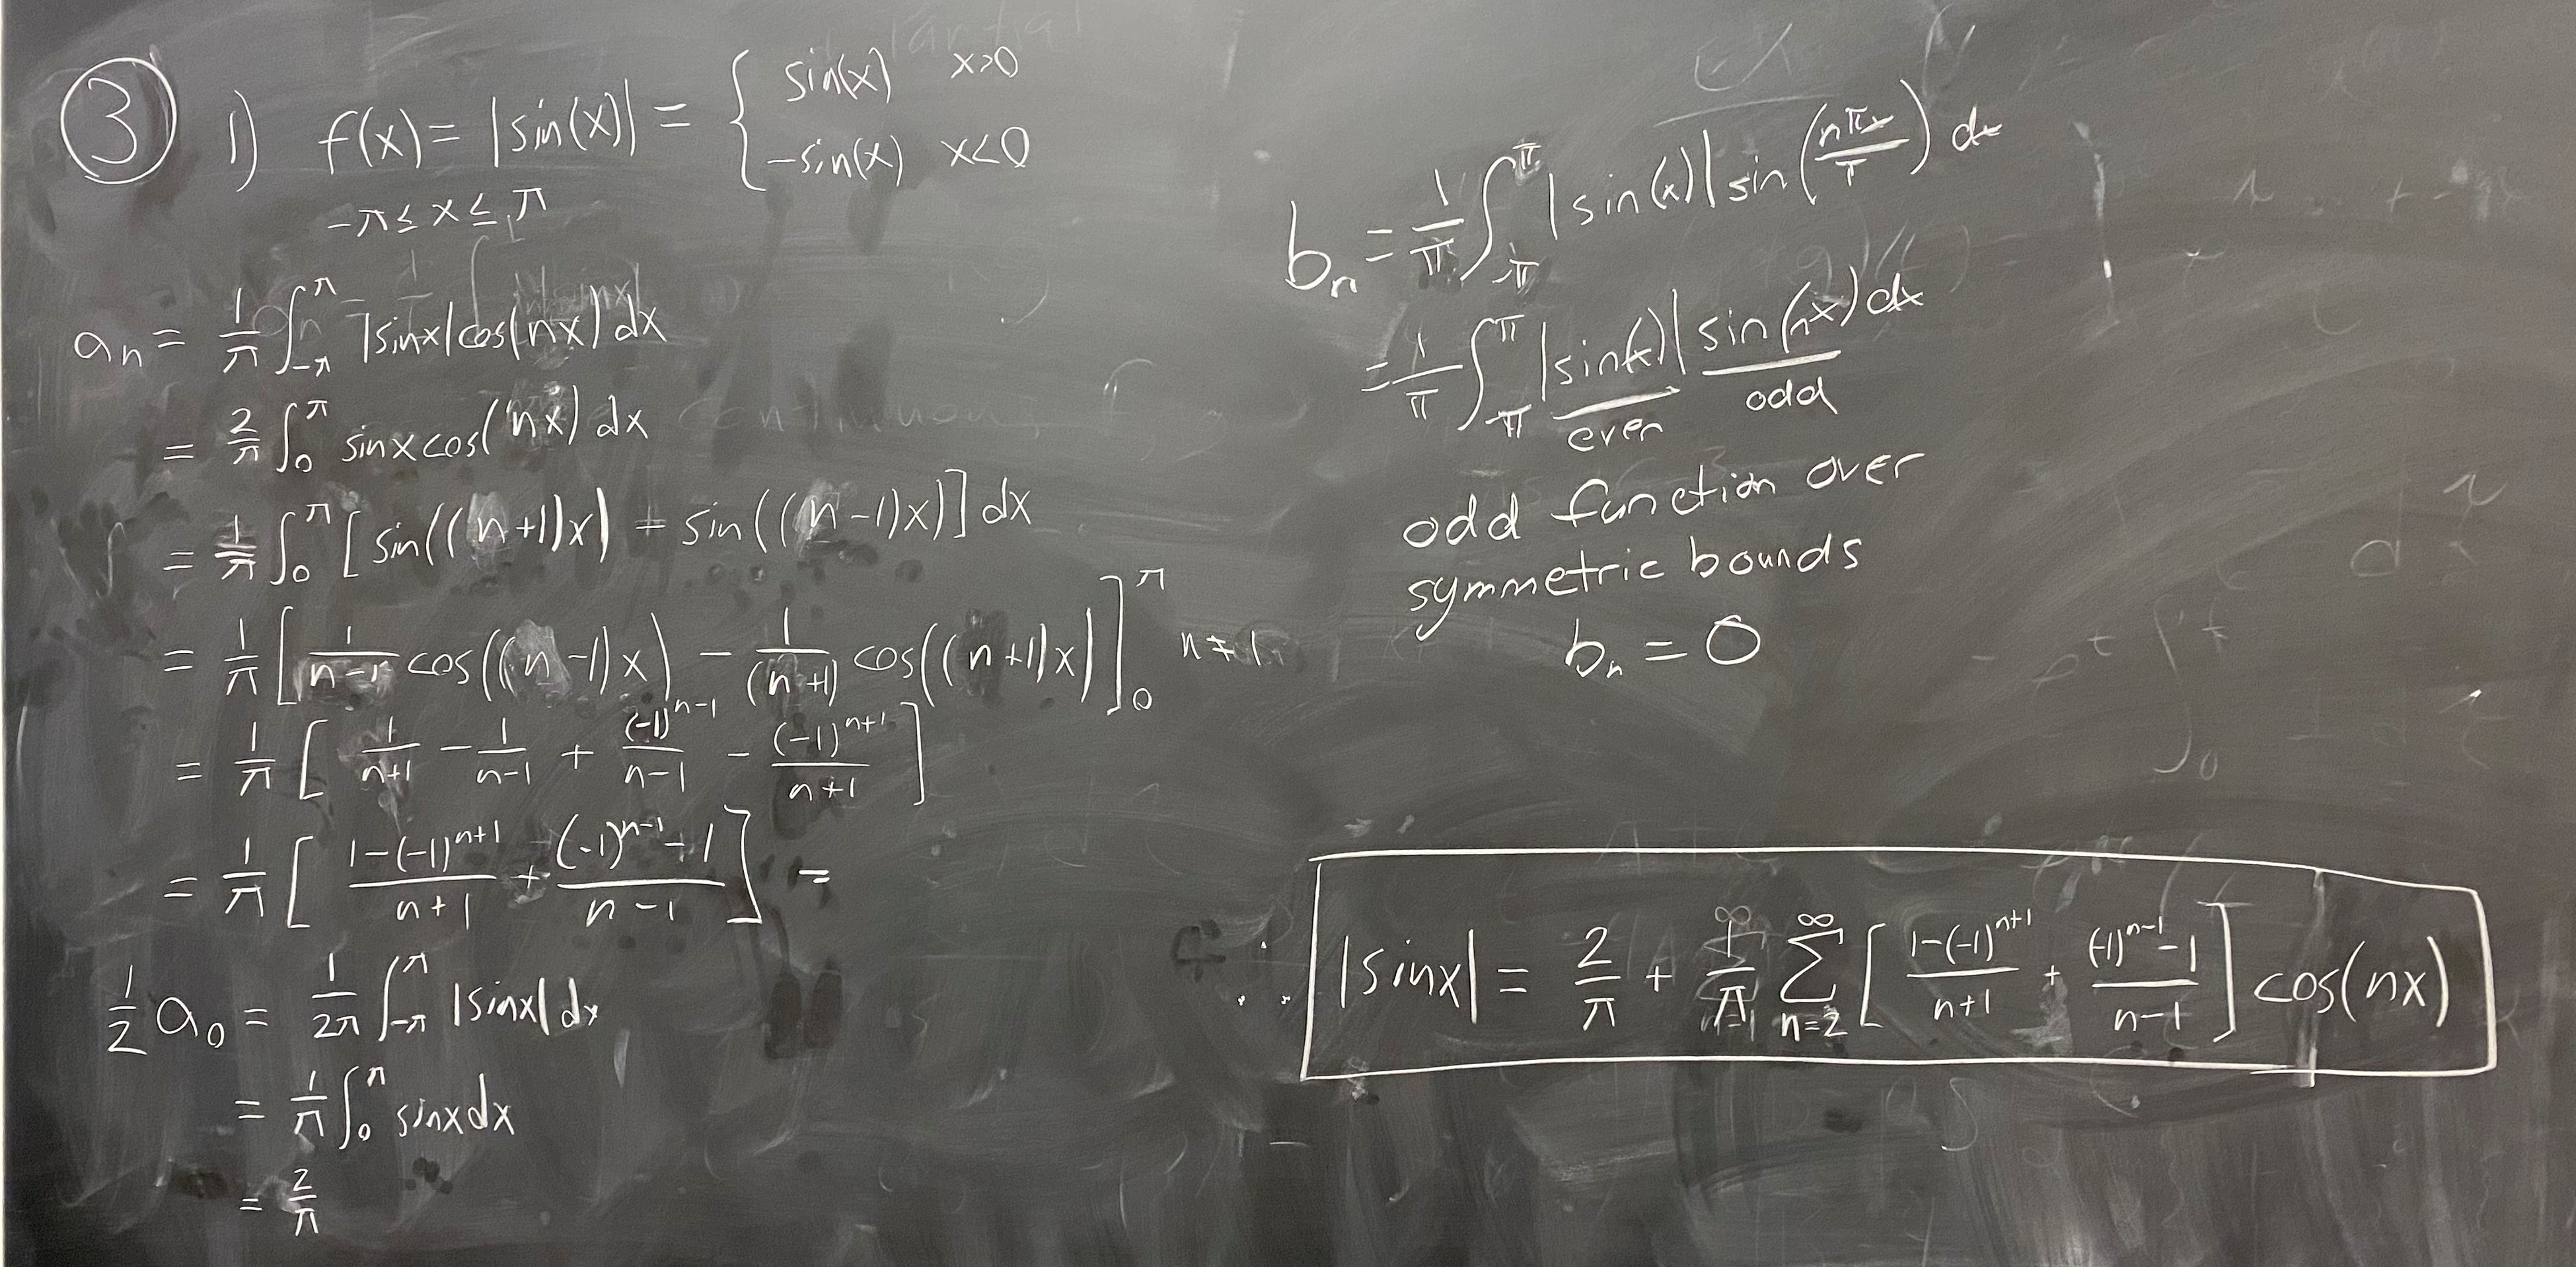 ③ 1) f(x) = |sin(x)| = { sin(x) x>0
-sin(x) x<0
-π ≤ x ≤ π
aₙ = 1/π ∫_{-π}^{π} |sinx|cos(nx) dx
= 2/π ∫_0^π sinx cos(nx) dx
= 1/π ∫_0^π [sin((n+1)x) - sin((n-1)x)] dx
= 1/π [1/(n-1) cos((n-1)x) - 1/(n+1) cos((n+1)x)]_0^π n≠1
= 1/π [1/(n+1) - 1/(n-1) + (-1)^{n-1}/(n-1) - (-1)^{n+1}/(n+1)]
= 1/π [(1-(-1)^{n+1})/(n+1) + ((-1)^{n-1} - 1)/(n-1)] =
1/2 a₀ = 1/2π ∫_{-π}^{π} |sinx| dx
= 1/π ∫_0^π sinx dx
= 2/π
bₙ = 1/π ∫_{-π}^{π} |sin(x)| sin(nπx/π) dx
= 1/π ∫_{-π}^{π} |sin(x)| sin(nx) dx
even odd
odd function over
symmetric bounds
bₙ = 0
∴ |sinx| = 2/π + 1/π ∑_{n=2}^{∞} [(1-(-1)^{n+1})/(n+1) + ((-1)^{n-1} - 1)/(n-1)] cos(nx)